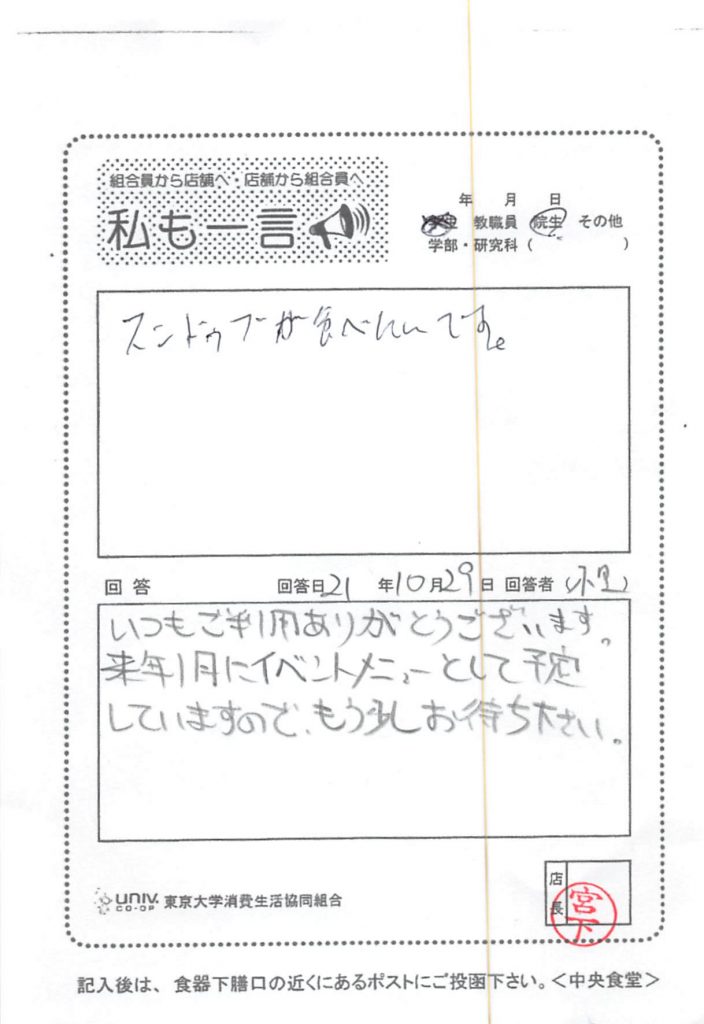 組合員から店舗へ・店舗から組合員へ
私も一言
年 月 日
学生 教職員 院生 その他
学部・研究科（ ）
スンドゥブが食べたいです。
回答 回答日21年10月29日 回答者
いつもご利用ありがとうございます。
来年1月にイベントメニューとして予定
していますので、もう少しお待ち下さい。
店長
宮下
UNIV. CO-OP 東京大学消費生活協同組合
記入後は、食器下膳口の近くにあるポストにご投函下さい。＜中央食堂＞